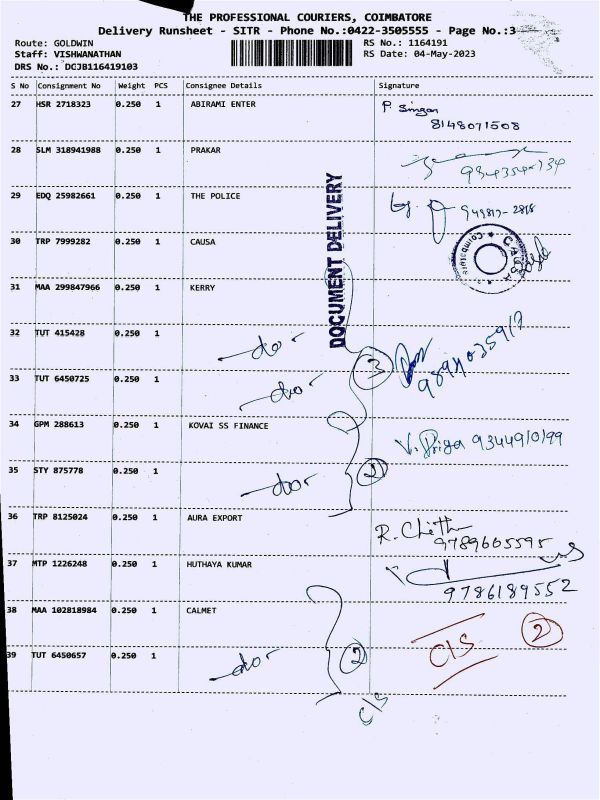 THE PROFESSIONAL COURIERS, COIMBATORE
Delivery Runsheet - SITR - Phone No.:0422-3505555 - Page No.:3
Route: GOLDWIN
Staff: VISHWANATHAN
DRS No.: DGJB116419103
RS No.: 1164191
RS Date: 04-May-2023
S No Consignment No Weight PCS Consignee Details Signature
27 HSR 2718323 0.250 1 ABIRAMI ENTER
8148071508
28 SLM 318941988 0.250 1 PRAKAR
29 EDQ 25982661 0.250 1 THE POLICE
30 TRP 7999282 0.250 1 CAUSA
CAUSA
31 MAA 299847966 0.250 1 KERRY
DOCUMENT DELIVERY
32 TUT 415428 0.250 1
33 TUT 6450725 0.250 1
3
34 GPM 288613 0.250 1 KOVAI SS FINANCE
V. Priya 9344910199
35 STY 875778 0.250 1
2
36 TRP 8125024 0.250 1 AURA EXPORT
9789605595
37 MTP 1226248 0.250 1 HUTHAYA KUMAR
9786189552
38 MAA 102818984 0.250 1 CALMET
C/S 2
39 TUT 6450657 0.250 1
2
C/S